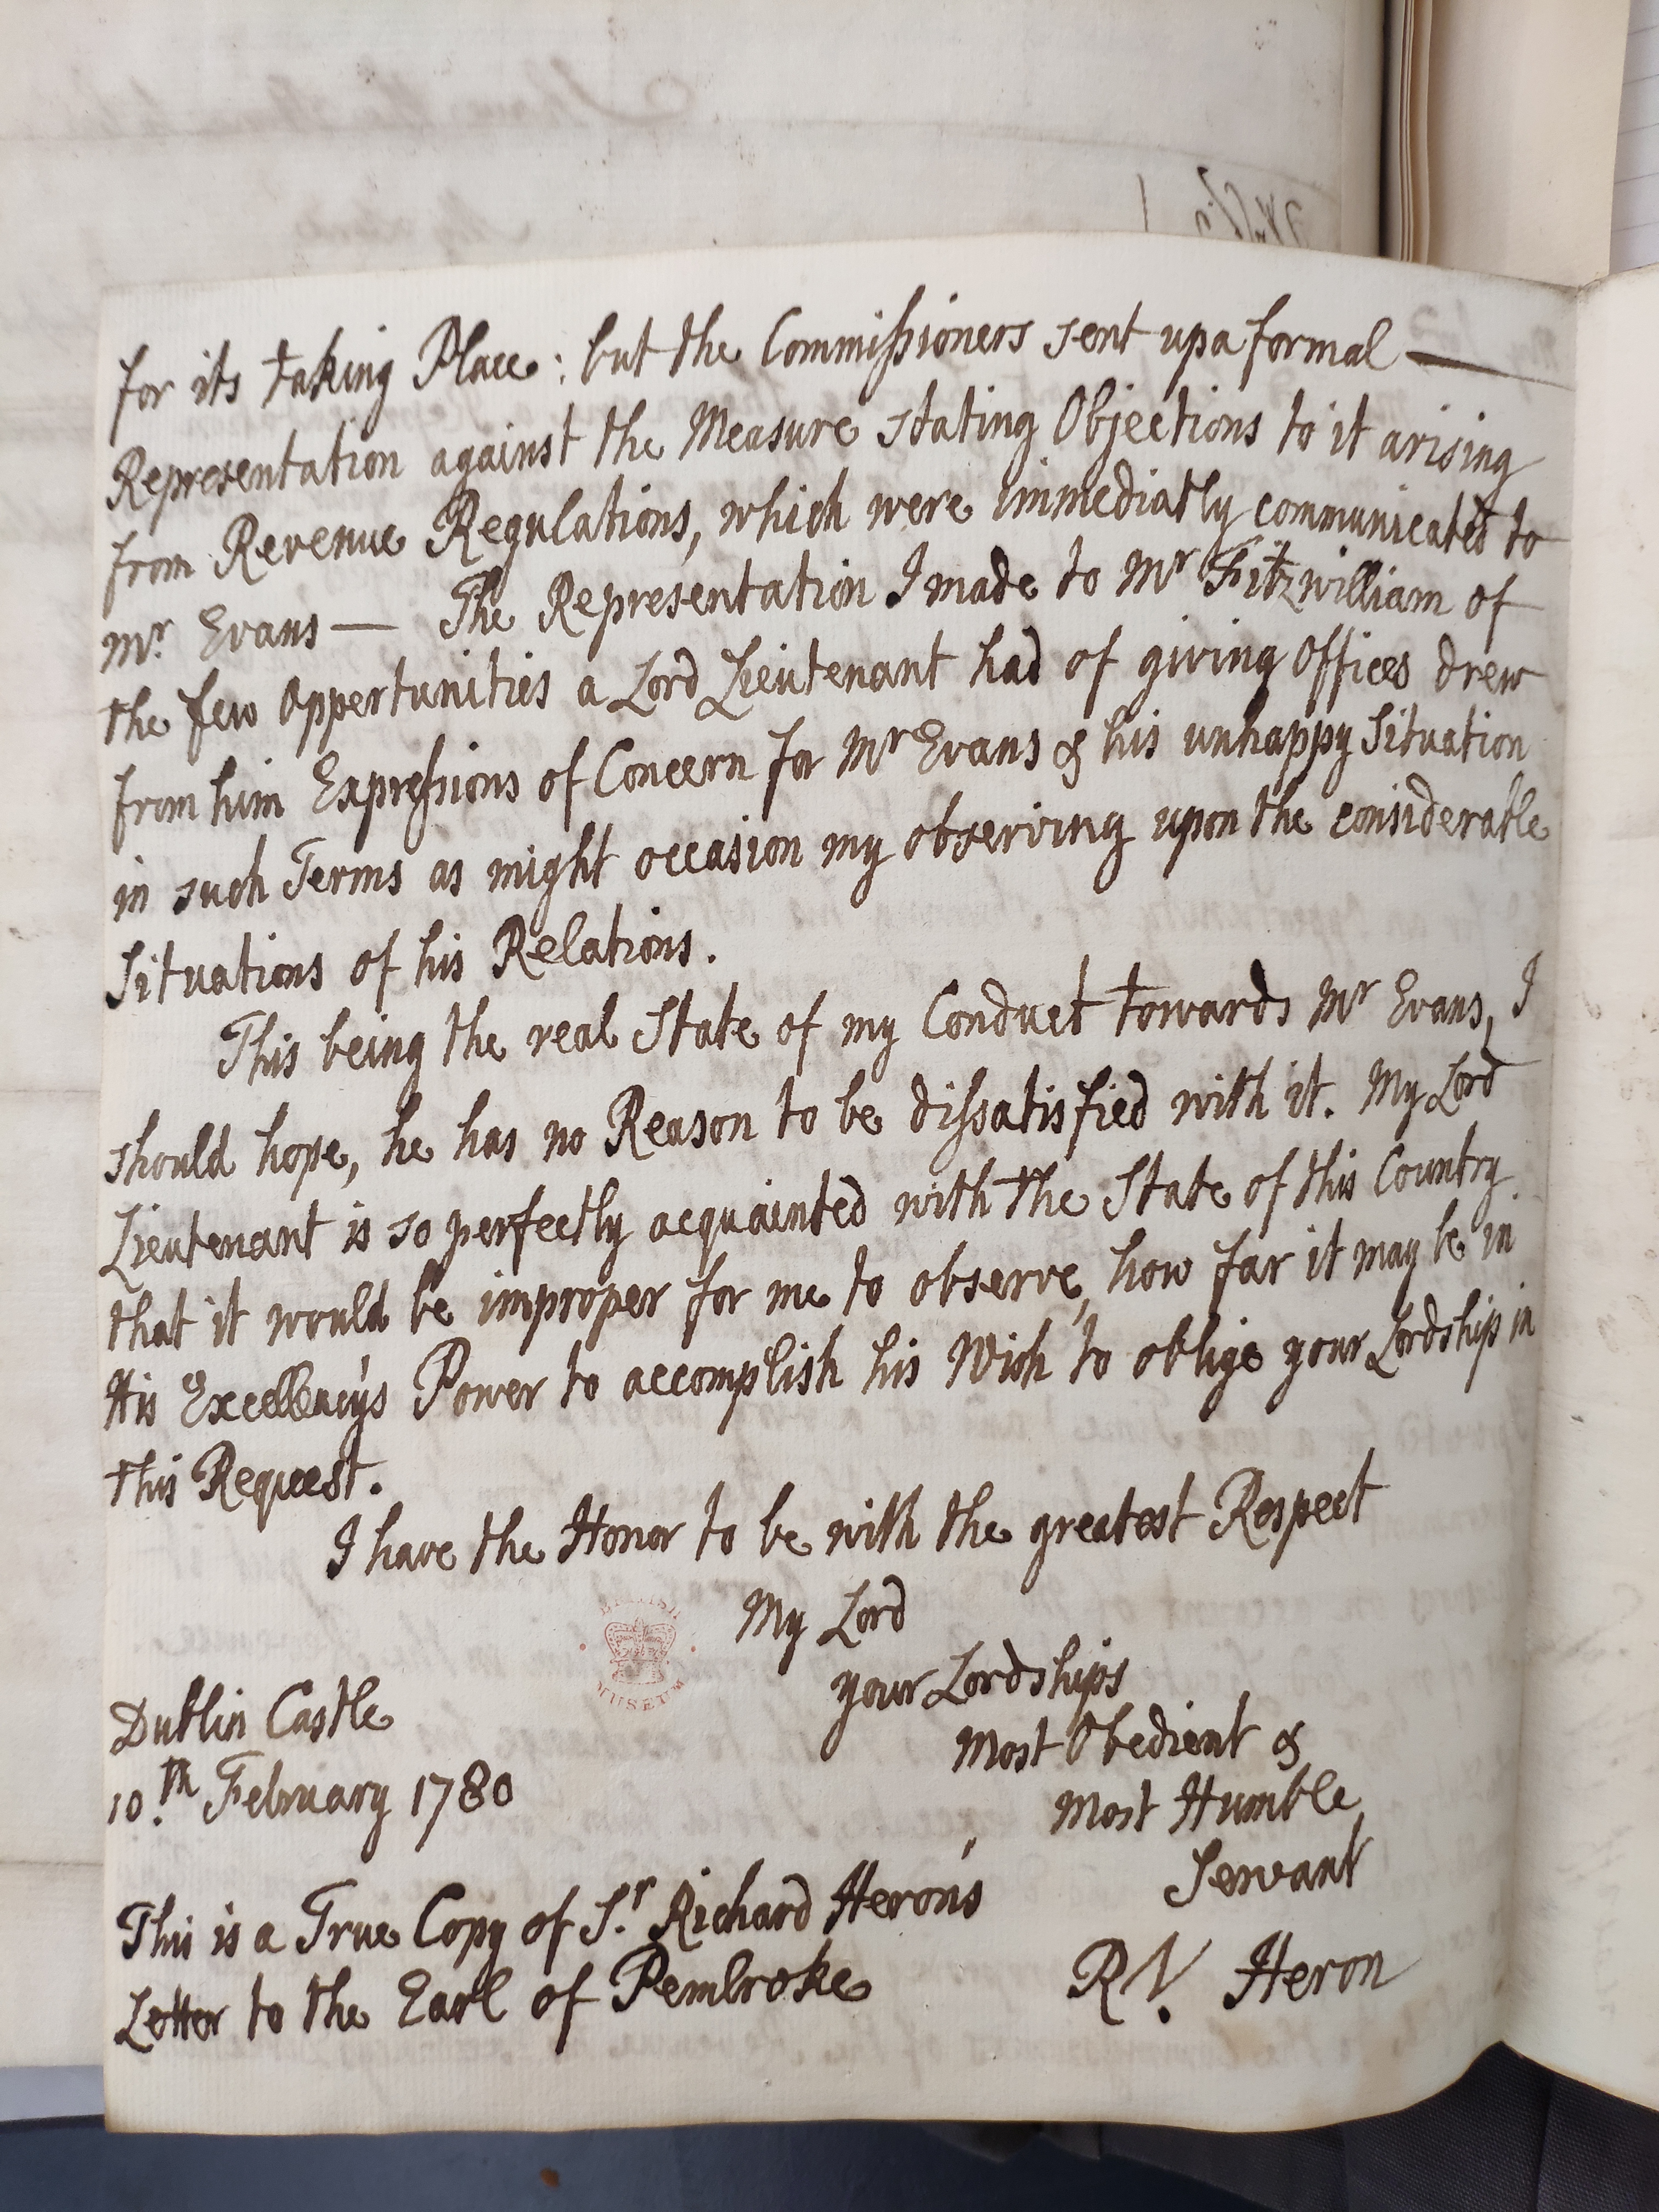 for its taking Place: but the Commissioners sent up a formal —
Representation against the Measure stating Objections to it arising
from Revenue Regulations, which were immediatly communicated to
Mr. Evans — The Representation I made to Mr Fitzwilliam of
the few Oppertunities a Lord Lieutenant had of giving Offices drew
from him Expressions of Concern for Mr Evans & his unhappy Situation
in such Terms as might occasion my observing upon the considerable
Situations of his Relations.
This being the real State of my Conduct towards Mr Evans, I
should hope, he has no Reason to be dissatisfied with it. My Lord
Lieutenant is so perfectly acquainted with the State of this Country
that it would be improper for me to observe, how far it may be in
His Excellency's Power to accomplish his Wish to oblige your Lordship in
this Request.
I have the Honor to be with the greatest Respect
My Lord
your Lordships
Most Obedient &
Most Humble
Servant
Rd. Heron
Dublin Castle
10.th February 1780
This is a True Copy of Sr. Richard Heron's
Letter to the Earl of Pembroke
BRITISH
MUSEUM